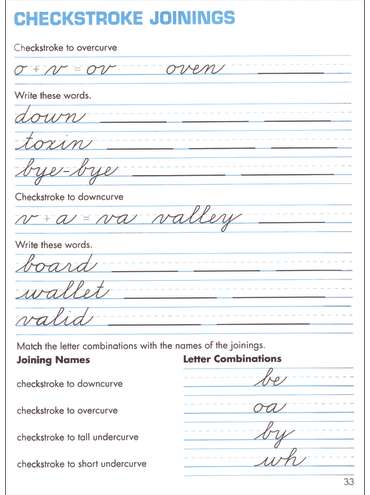 CHECKSTROKE JOININGS
Checkstroke to overcurve
o + v = ov oven
Write these words.
down
toxin
bye-bye
Checkstroke to downcurve
v + a = va valley
Write these words.
board
wallet
valid
Match the letter combinations with the names of the joinings.
Joining Names Letter Combinations
checkstroke to downcurve be
checkstroke to overcurve oa
checkstroke to tall undercurve by
checkstroke to short undercurve wh
33